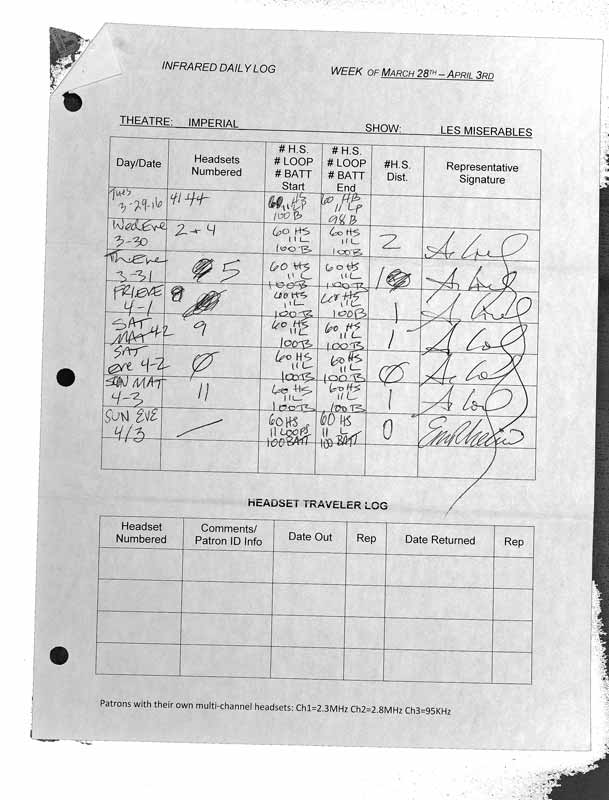 INFRARED DAILY LOG WEEK OF MARCH 28TH – APRIL 3RD
THEATRE: IMPERIAL SHOW: LES MISERABLES
Day/Date Headsets Numbered # H.S. # LOOP # BATT Start # H.S. # LOOP # BATT End #H.S. Dist. Representative Signature
Tues 3-29-16 41 44 60 HS 11 LP 100 B 60 HB 11 LP 98 B
Wed Eve 3-30 2 + 4 60 HS 11 L 100 B 60 HS 11 L 100 B 2
Th Eve 3-31 5 60 HS 11 L 100 B 60 HS 11 L 100 B 1
FRI EVE 4-1 8 60 HS 11 L 100 B 60 HS 11 L 100 B 1
SAT MAT 42 9 60 HS 11 L 100 B 60 HS 11 L 100 B 1
SAT eve 4-2 Ø 60 HS 11 L 100 B 60 HS 11 L 100 B Ø
SUN MAT 4-3 11 60 HS 11 L 100 B 60 HS 11 L 100 B 1
SUN EVE 4/3 — 60 HS 11 LOOPS 100 BATT 60 HS 11 L 100 BATT 0
HEADSET TRAVELER LOG
Headset Numbered Comments/ Patron ID Info Date Out Rep Date Returned Rep
Patrons with their own multi-channel headsets: Ch1=2.3MHz Ch2=2.8MHz Ch3=95KHz